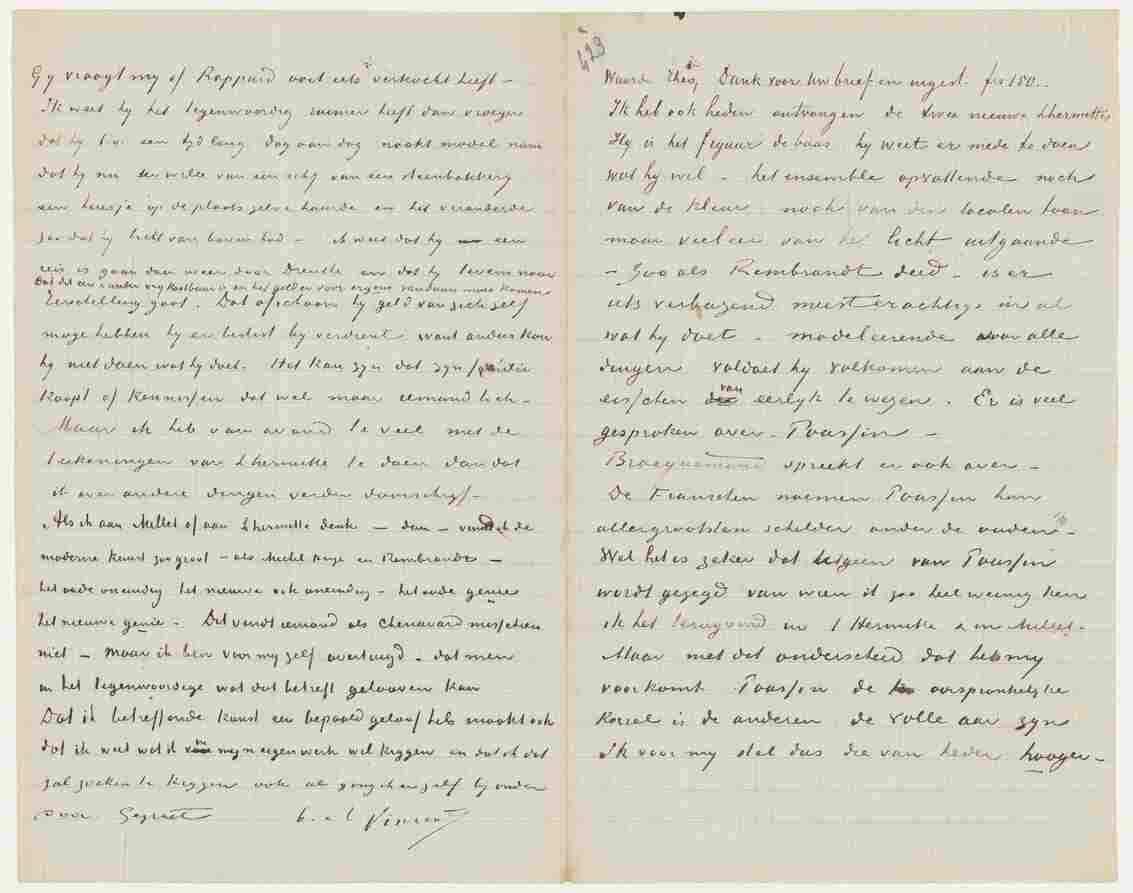 Gy vraagt my of Rappard ooit iets verkocht heeft –
Ik weet hy het tegenwoordig ruimer heeft dan vroeger
dat hy b.v. een tyd lang dag aan dag naakt model nam
dat hy nu ten wille van een schy van een steenbakkery
een huisje op de plaats zelve huurde en het veranderde
zoo dat hy licht van boven had – ik weet dat hy een
reis is gaan doen weer door Drenthe en dat hy tevens naar
Dat dit een & ander vry kostbaar is en het geld er voor ergens vandaan moet komen
Terschelling gaat. Dat ofschoon hy geld van zich zelf
moge hebben hy er beslist by verdient want anders kon
hy niet doen wat hy doet. Het kan zyn dat zyn familie
koopt of kennissen dat wel maar iemand toch –
Maar ik heb van avond te veel met de
teekeningen van Lhermitte te doen dan dat
ik over andere dingen verder doorschryf –
Als ik aan Millet of aan Lhermitte denk – dan – vind ik de
moderne kunst zoo groot – als Michel Ange en Rembrandt –
het oude oneindig het nieuwe ook oneindig – het oude genie
het nieuwe genie – Dit vindt iemand als Chenavard misschien
niet – maar ik ben voor my zelf overtuigd – dat men
in het tegenwoordige wat dat betreft gelooven kan
Dat ik betreffende kunst een bepaald geloof heb maakt ook
dat ik weet wat ik in myn eigen werk wil krygen en dat ik dat
zal zoeken te krygen ook al ga ik er zelf by onder
door. Gegroet b. à t. Vincent
423
Waarde Theo, Dank voor Uw brief en ingesl. frs 150.–
Ik heb ook heden ontvangen de twee nieuwe Lhermittes
Hy is het figuur de baas hy weet er mede te doen
wat hy wil – het ensemble opvattende noch
van de kleur noch van den localen toon
maar veeleer van het licht uitgaande
– zoo als Rembrandt deed – is er
iets verbazend meesterachtigs in al
wat hy doet – modeleerende voor alle
dingen voldoet hy volkomen aan de
eisschen van eerlyk te wezen. Er is veel
gesproken over – Poussin –
Bracquemond spreekt er ook over –
De Franschen noemen Poussin hun
allergrootsten schilder onder de ouden –
Wel het is zeker dat hetgeen van Poussin
wordt gezegd van wien ik zoo heel weinig ken
ik het terugvind in Lhermitte & in Millet –
Maar met dit onderscheid dat het my
voorkomt Poussin de oorspronkelyke
korrel is de anderen de volle aar zyn
Ik voor my stel dus die van heden hooger –